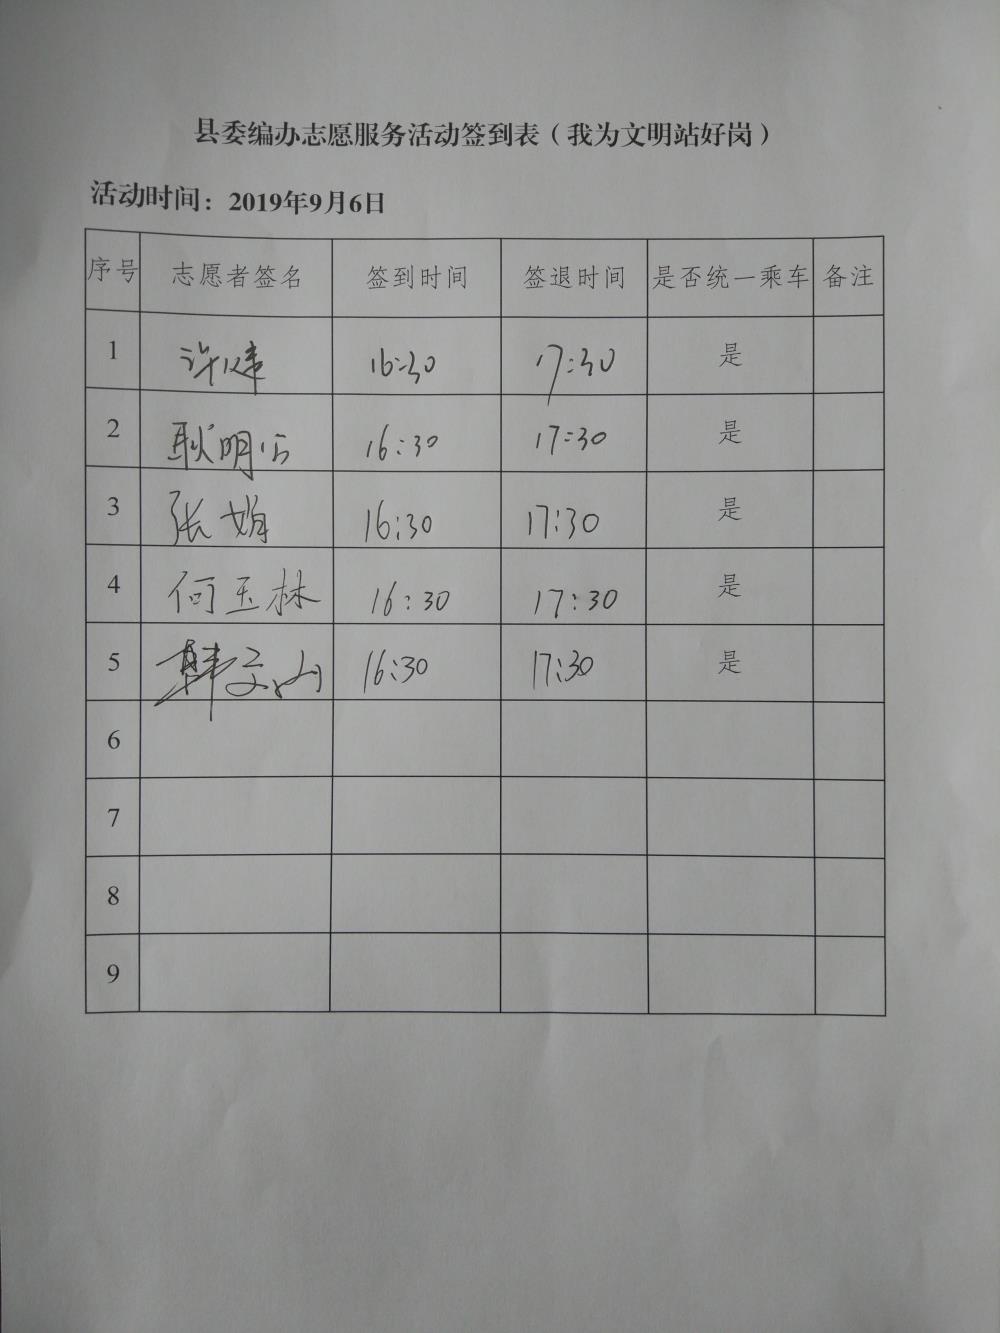 县委编办志愿服务活动签到表（我为文明站好岗）
活动时间：2019年9月6日
序号 志愿者签名 签到时间 签退时间 是否统一乘车 备注
1 许建 16:30 17:30 是
2 耿明 16:30 17:30 是
3 张娟 16:30 17:30 是
4 何玉林 16:30 17:30 是
5 韩文 16:30 17:30 是
6
7
8
9